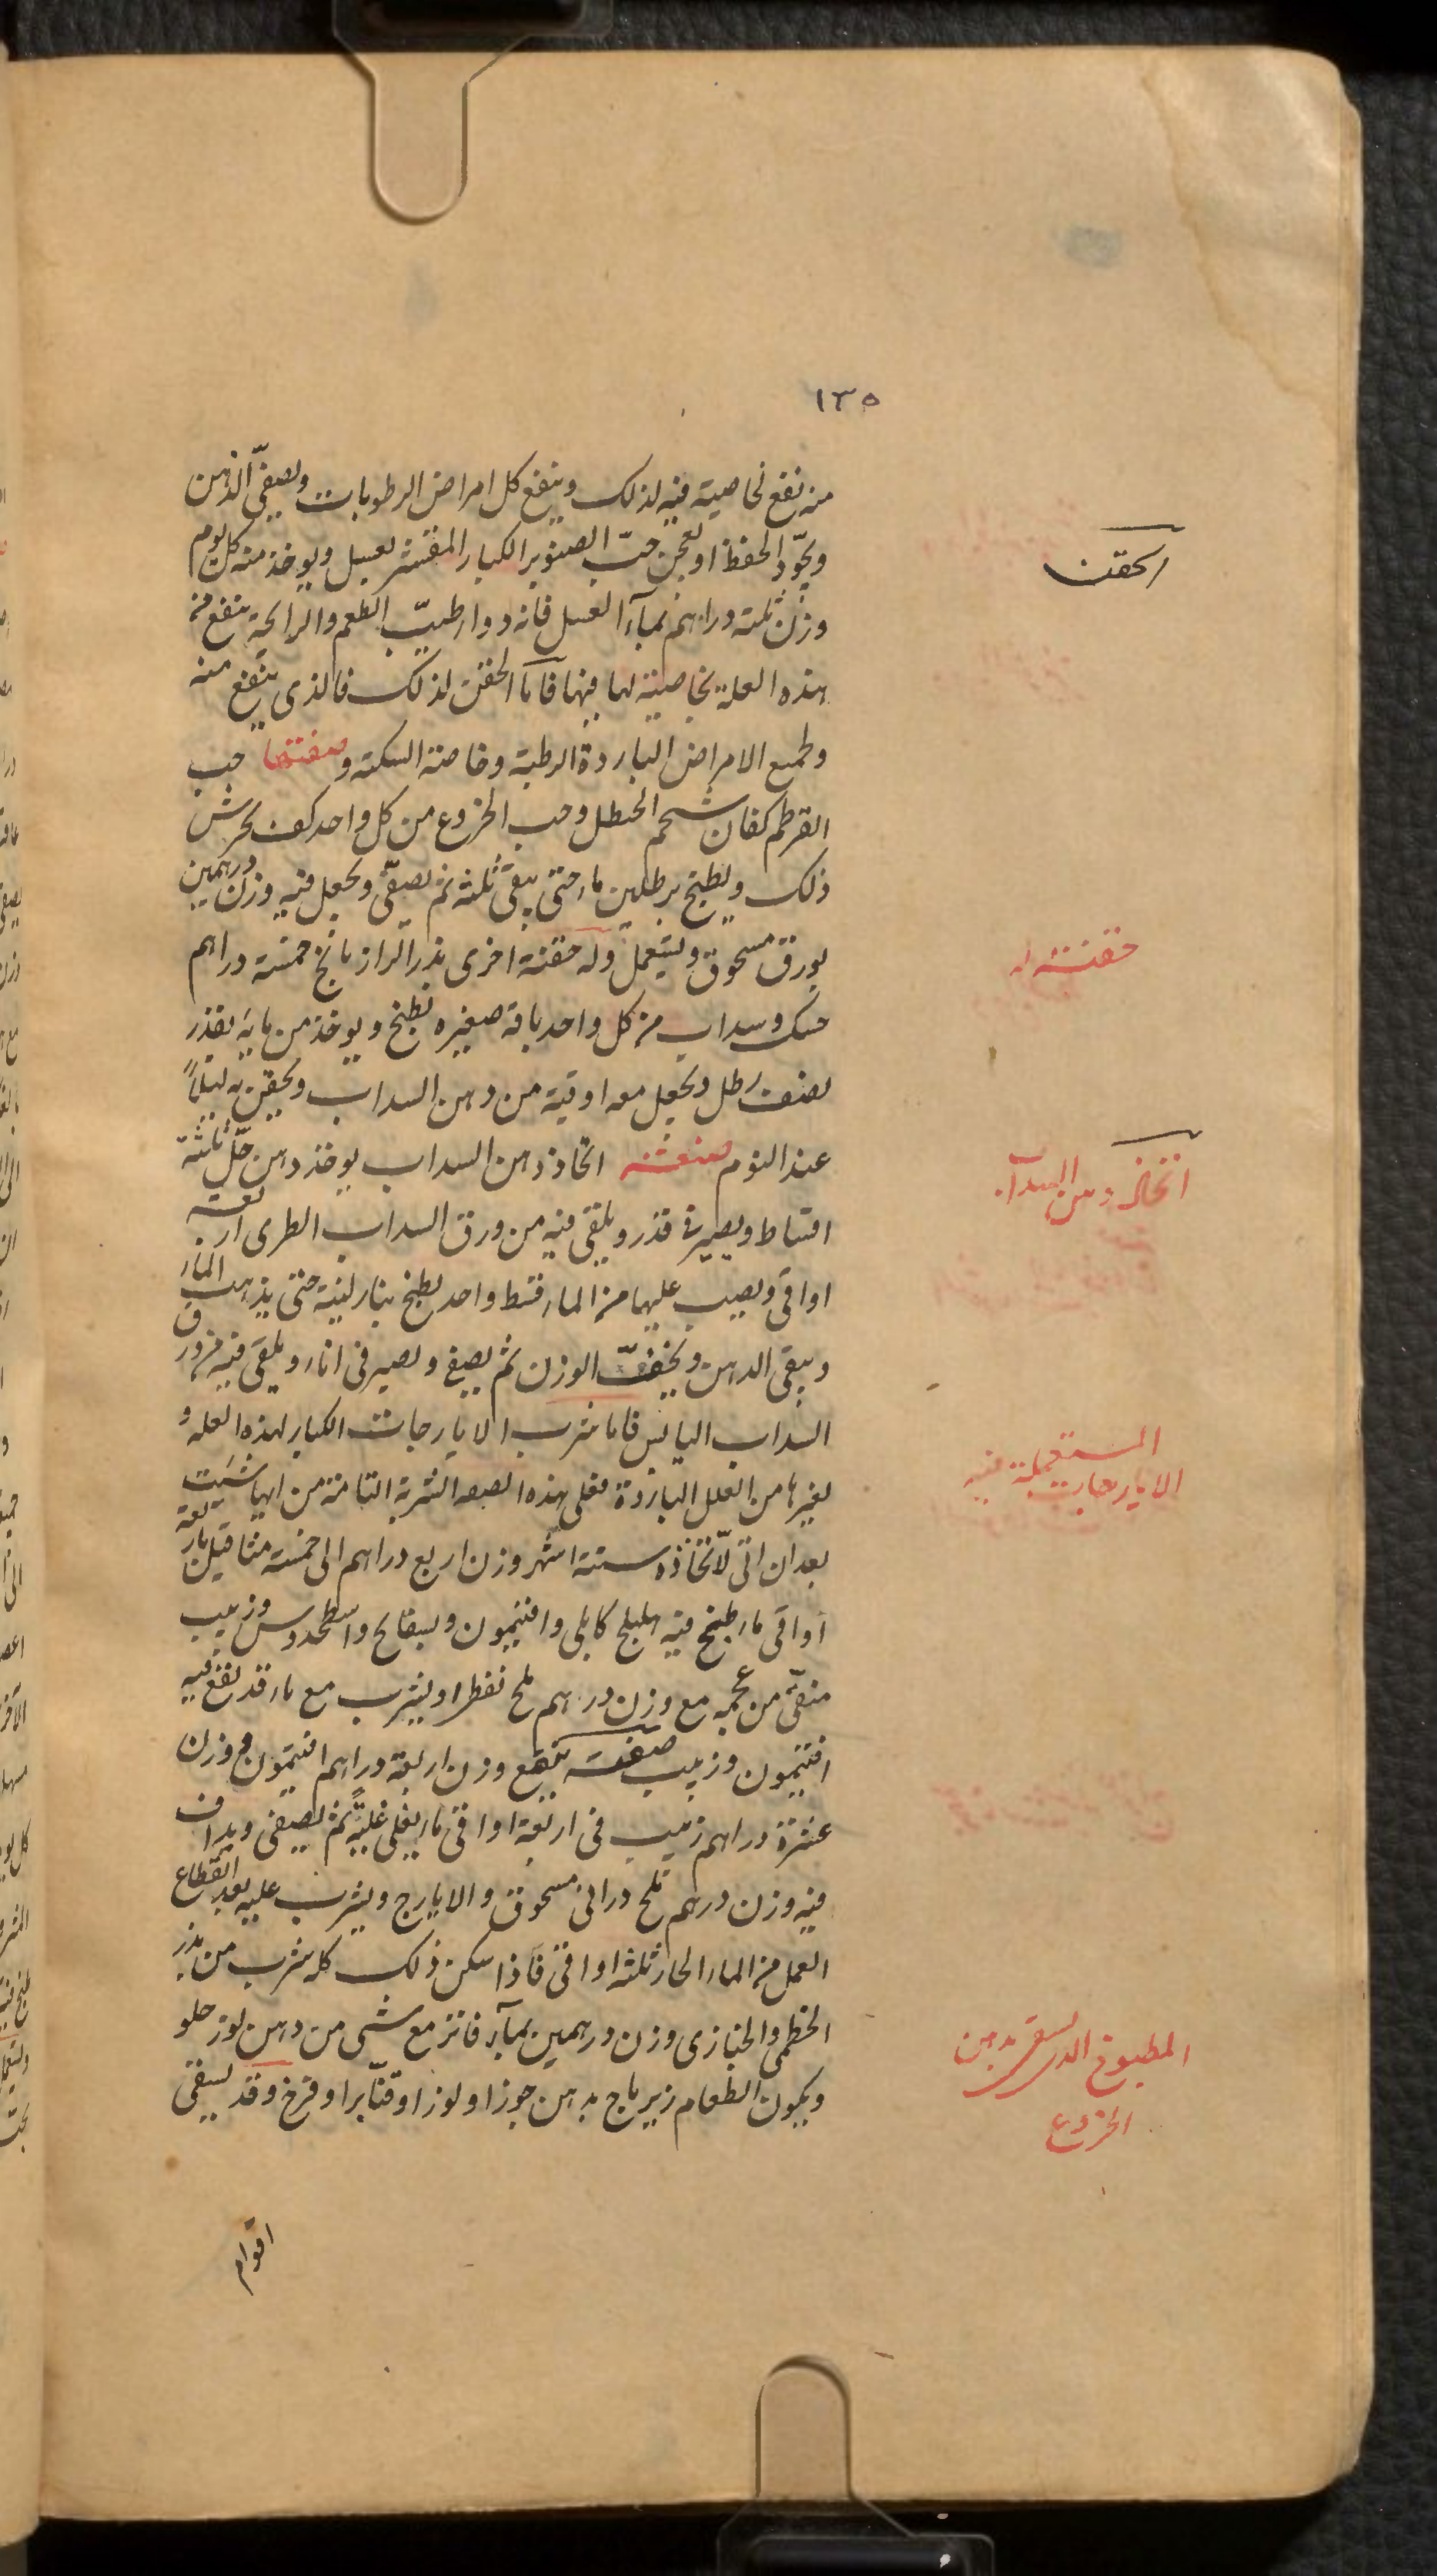 ١٣٥
منه نفع لخاصية فيه لذلك وينفع كل امراض الرطوبات ويصفّى الذهن
ويجّود الحفظ او يعجن حبّ الصنوبر الكبار المقشر بعسل ويوخذ منه كل يوم
وزن ثلثة دراهم بمآء العسل فانه دوا طيّب الطعم والرايحة ينفع من
هذه العلة بخاصية لها فيها فاما الحقن لذلك فالذى ينفع منه
ولجميع الامراض الباردة الرطبة وخاصة السكتة وصفتها حب
القرطم كفان شحم الحنظل وحب الخروع من كل واحد كف يجرش
ذلك ويطبخ برطلين ماء حتى يبقى ثلثه ثم يصفّى ويجعل فيه وزن درهمين
بورق مسحوق ويستعمل وله حقنة اخرى بذر الرازيانج خمسة دراهم
حسك وسداب من كل واحد باقة صغيره يطبخ ويوخذ من مايه بقدر
نصف رطل ويجعل معه اوقية من دهن السداب ويحقن به ليلًا
عند النوم صفة اتخاذ دهن السداب يوخذ دهن حلّ ثلثة
اقساط ويصير فى قدر ويلقى فيه من ورق السداب الطرى اربعة
اواقى ويصب عليها من الماء قسط واحد يطبخ بنار لينة حتى يذهب الماء
ويبقى الدهن ويخفف الوزن ثم يصفى ويصير فى اناء ويلقى فيه من ورق
السداب اليابس فاما شرب الايارجات الكبار لهذه العله و
لغيرها من العلل الباردة فعلى هذه الصفه الشربة التامة من ايها شيت
بعد ان اتى لاتخاذه ستة اشهر وزن اربع دراهم الى خمسة مثاقيل باربعة
اواقى ماء طبخ فيه هليلج كابلى وافتيمون وبسفايج واسطحدوس وزبيب
منقّى من عجمه مع وزن درهم ملح نفطى او يشرب مع ماء قد نقع فيه
افتيمون وزبيب صفته ينقع وزن اربعة دراهم افتيمون ووزن
عشرة دراهم زبيب فى اربعة اواقى ماء يغلى غليةً ثم يصفى ويداف
فيه وزن درهم ملح درانى مسحوق والايارج ويشرب عليه بعد انقطاع
العمل من الماء الحار ثلثه اواقى فاذا سكن ذلك كله شرب من بذر
الخطمى والخبازى وزن درهمين بمآء فاتر مع شى من دهن لوز حلو
ويكون الطعام زيرباج بدهن جوز او لوز او قنابر او فرخ وقد يسقى
اقوام
الحقن
حقنة له
اتخاذ دهن السداب
المستعملة فيه
الايارجات
المطبوخ الذى يسقى بدهن
الخروع